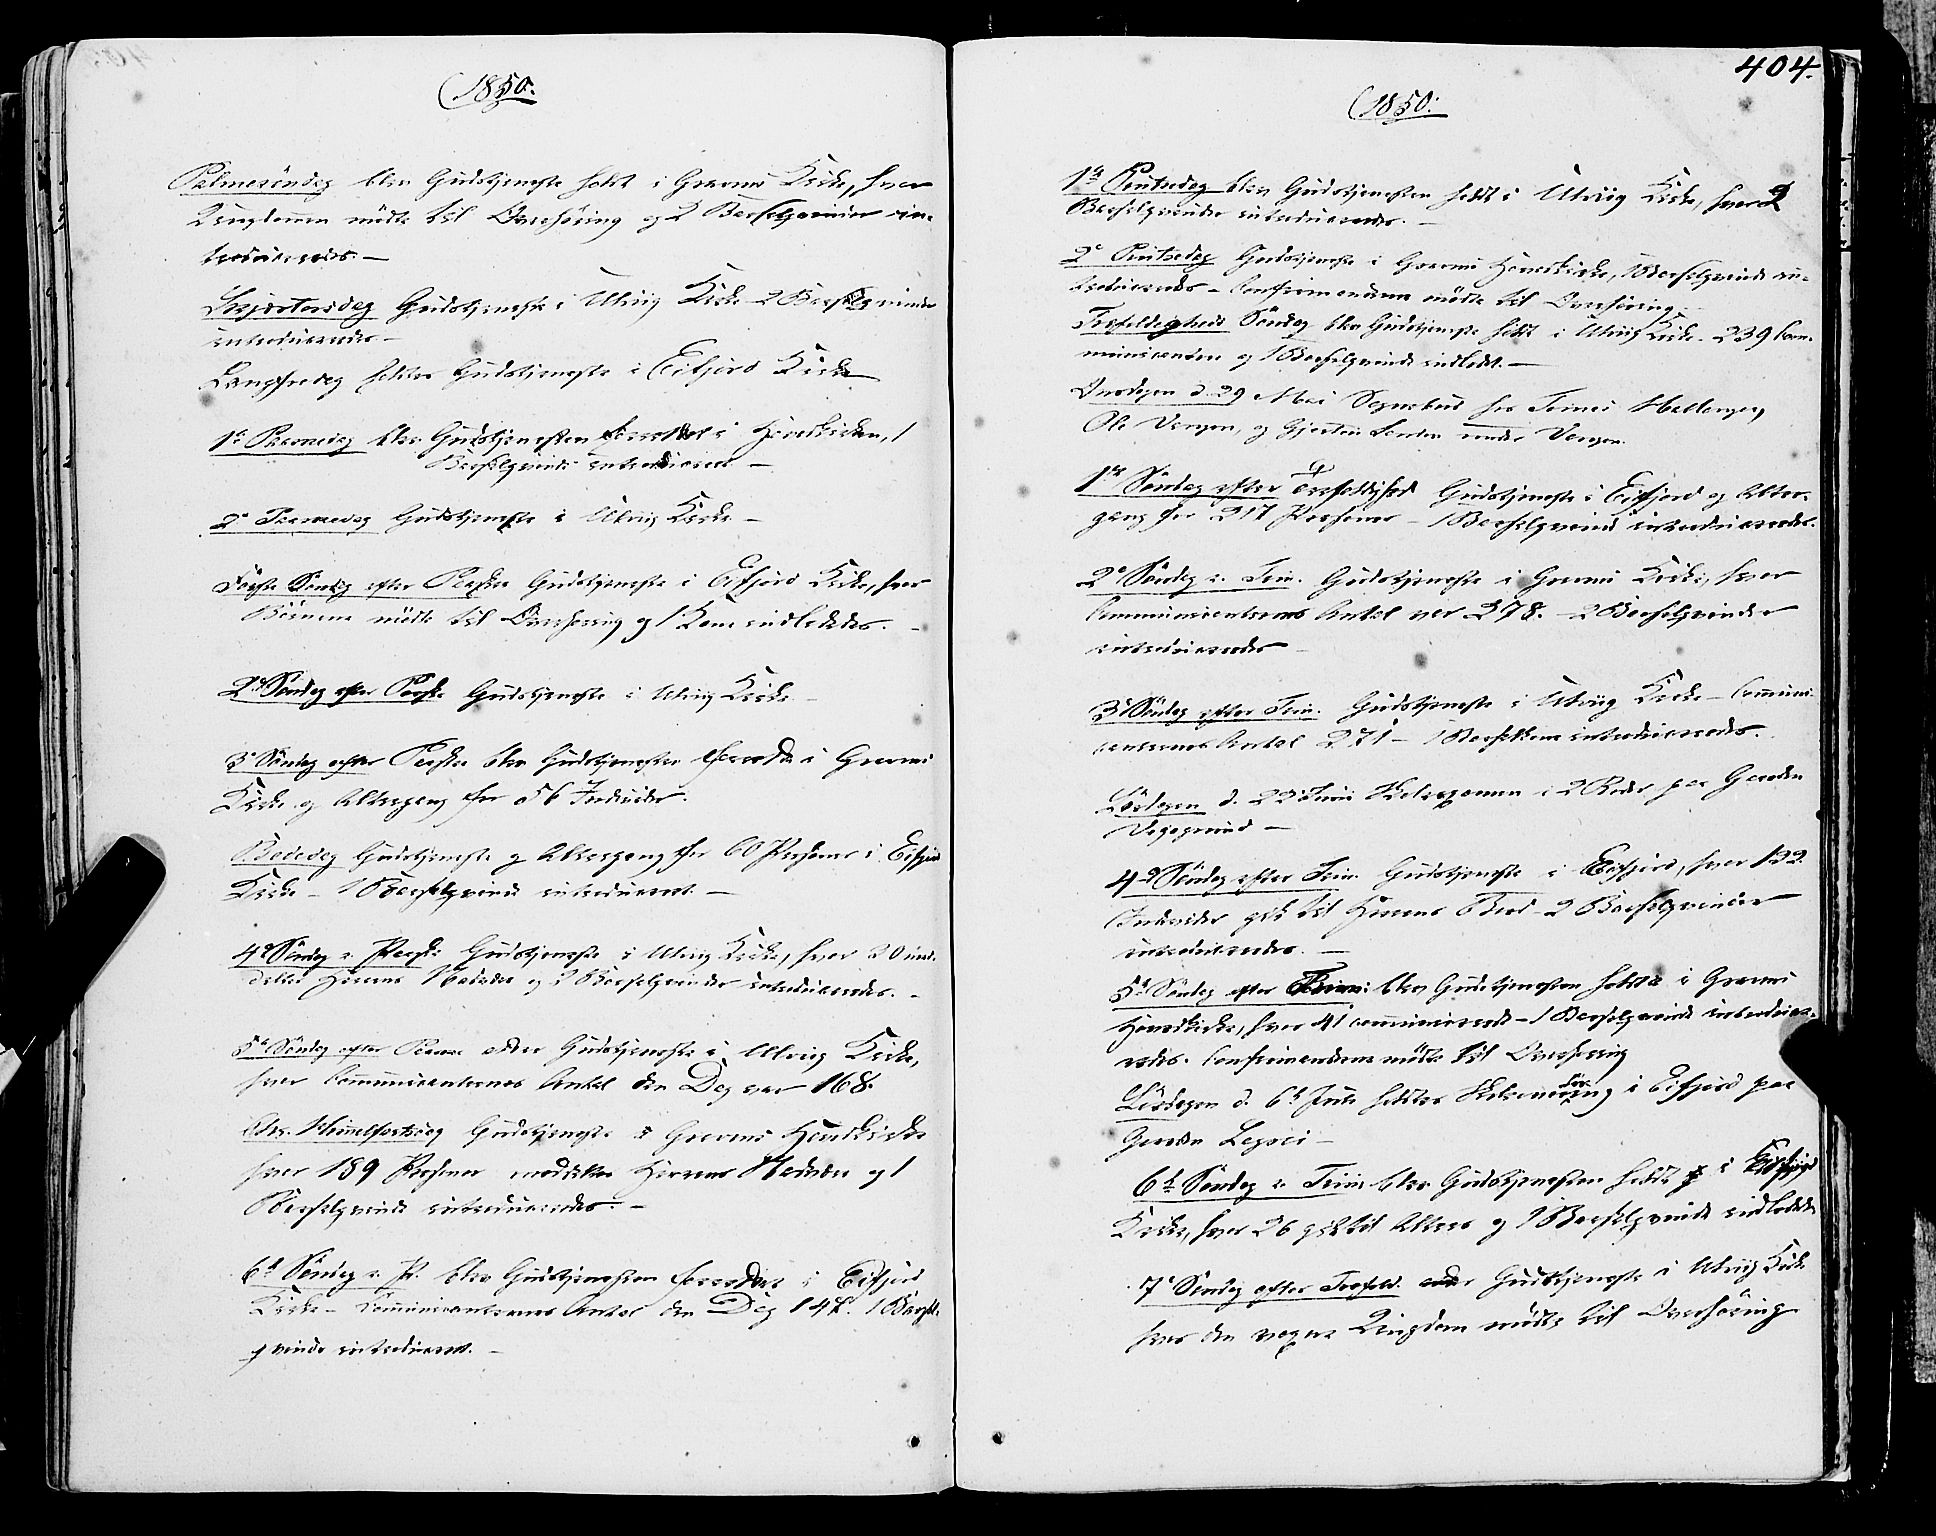 (1850.
Palmesöndag blev Gudstjeneste holdt i Graven Kirke, hvor
Ungdommen mödte til Overhöring og 2 Barselqvinder in-
troduceredes. —
Skjærtorsdag Gudstjeneste i Ulvig Kirke - 2 Barselqvinder
introduceredes —
Langfredag holdtes Gudstjeneste i Eifjord Kirke
1e Paaskedag blev Gudstjenesten forrettet i Hovedkirken, 1
Barselqvinde introduceret —
2e Paaskedag Gudstjeneste i Ulvig Kirke —
Förste Söndag efter Paaske Gudstjeneste i Eifjord Kirke, hvor
Börnene mödte til Overhöring og 1 Kone indlededes. —
2d Söndag efter Paaske Gudstjeneste i Ulvig Kirke —
3e Söndag efter Paaske blev Gudstjenesten forrettet i Graven
Kirke og Altergang for 56 Individer.
Bededag Gudstjeneste og Altergang for 60 Personer i Eifjord
Kirke - 1 Barselqvinde introduceret —
4de Söndag e. Paaske Gudstjeneste i Ulvig Kirke, hvor 20 med-
deltes Herrens Nadvere og 2 Barselqvinder introduceredes. —
5te Söndag efter Paaske Gudstjeneste i Ulvig Kirke,
hvor Communicanternes Antal den Dag var 168.
Chr. Himmelfartsdag Gudstjeneste i Graven Hovedkirke
hvor 189 Personer meddeltes Herrens Nadvere og 1
Barselqvinde introduceredes. —
6te Söndag e. P. blev Gudstjenesten forrettet i Eifjord
Kirke - Communicanternes Antal den Dag 147. 1 Barsel-
qvinde introduceret. —
404.
(1850.
1ste Pintsedag blev Gudstjenesten holdt i Ulvig Kirke, hvor 2
Barselqvinder introduceredes. —
2e Pintsedag Gudstjeneste i Graven Hovedkirke, 1 Barselqvinde in-
troduceredes - Confirmanderne mödte til Overhöring
Trefoldigheds Söndag blev Gudstjeneste holdt i Ulvig Kirke - 239 Com-
municanter og 1 Barselqvinde indledt. —
Onsdagen d. 29 Mai Sognebud hos
Ole og
1ste Söndag efter Trefoldighed Gudstjeneste i Eifjord og Alter-
gang for 217 Personer - 1 Barselqvinde introduceredes.
2e Söndag e. Trin. Gudstjeneste i Graven Kirke, hvor
Communicanternes Antal var 278. - 2 Barselqvinder
introduceredes —
3e Söndag efter Trin. Gudstjeneste i Ulvig Kirke - Communi-
canternes Antal 271 - 1 Barselkone introduceredes.
Löverdagen d. 22 Juni Skoleexamen i 2 Roder paa Gaarden
—
4de Söndag efter Trin. Gudstjeneste i Eifjord, hvor 122
Individer gik til Herrens Bord - 2 Barselqvinder
introduceredes. —
5te Söndag efter Trin: blev Gudstjenesten holdt i Graven
Hovedkirke, hvor 41 communicerede - 1 Barselqvinde introduce-
redes. Confirmanderne mödte til Overhöring
Löverdagen d. 6te Juli holdtes i Eifjord paa
Gaarden —
6te Söndag e. Trin blev Gudstjenesten holdt i Eifjord
Kirke, hvor 26 gik til Alters og 1 Barselqvinde indlededes
7e Söndag efter Trefold. Gudstjeneste i Ulvig Kirke
hvor den Ungdom mödte til Overhöring